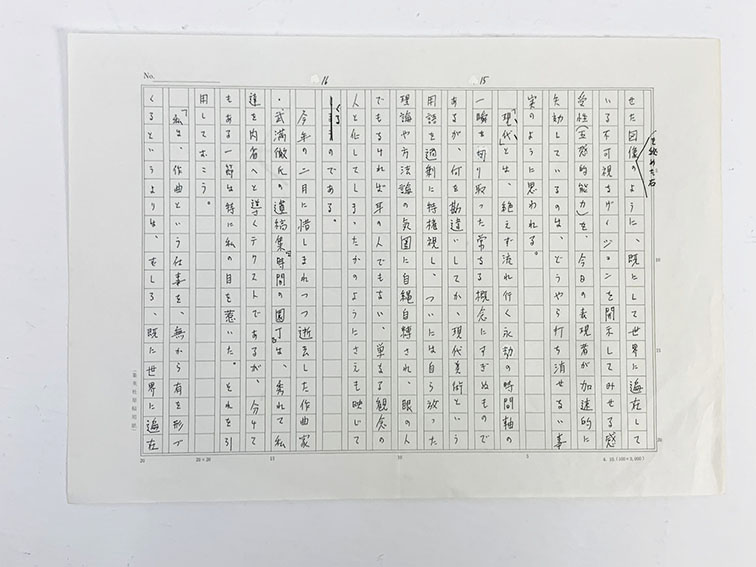 No.
16
15
を秘めた石
せた図像のように、既にして世界に遍在して
いる不可視なヴィジョンを開示してみせる感
受性(五感的能力)を、今日の表現者が加速的に
失効しているのは、どうやら打ち消せない事
実のように思われる。
「現代」とは、絶えず流れ行く永劫の時間軸の
一瞬を切り取った単なる概念にすぎぬもので
あるが、何を勘違いしてか、現代美術という
用語を過剰に特権視し、ついには自ら放った
理論や方法論の気圏に自縄自縛され、眼の人
でもなければ耳の人でもない、単なる観念の
人と化してしまったかのようにさえも映じて
くるのである。
今年の二月に惜しまれつつ逝去した作曲家
・武満徹氏の遺稿集『時間の園丁』は、秀れて私
達を内省へと導くテクストであるが、分けて
もある一節は特に私の目を惹いた。それを引
用しておこう。
「私は、作曲という仕事を、無から有を形づ
くるというよりは、むしろ、既に世界に遍在
20
20×20
15
10
5